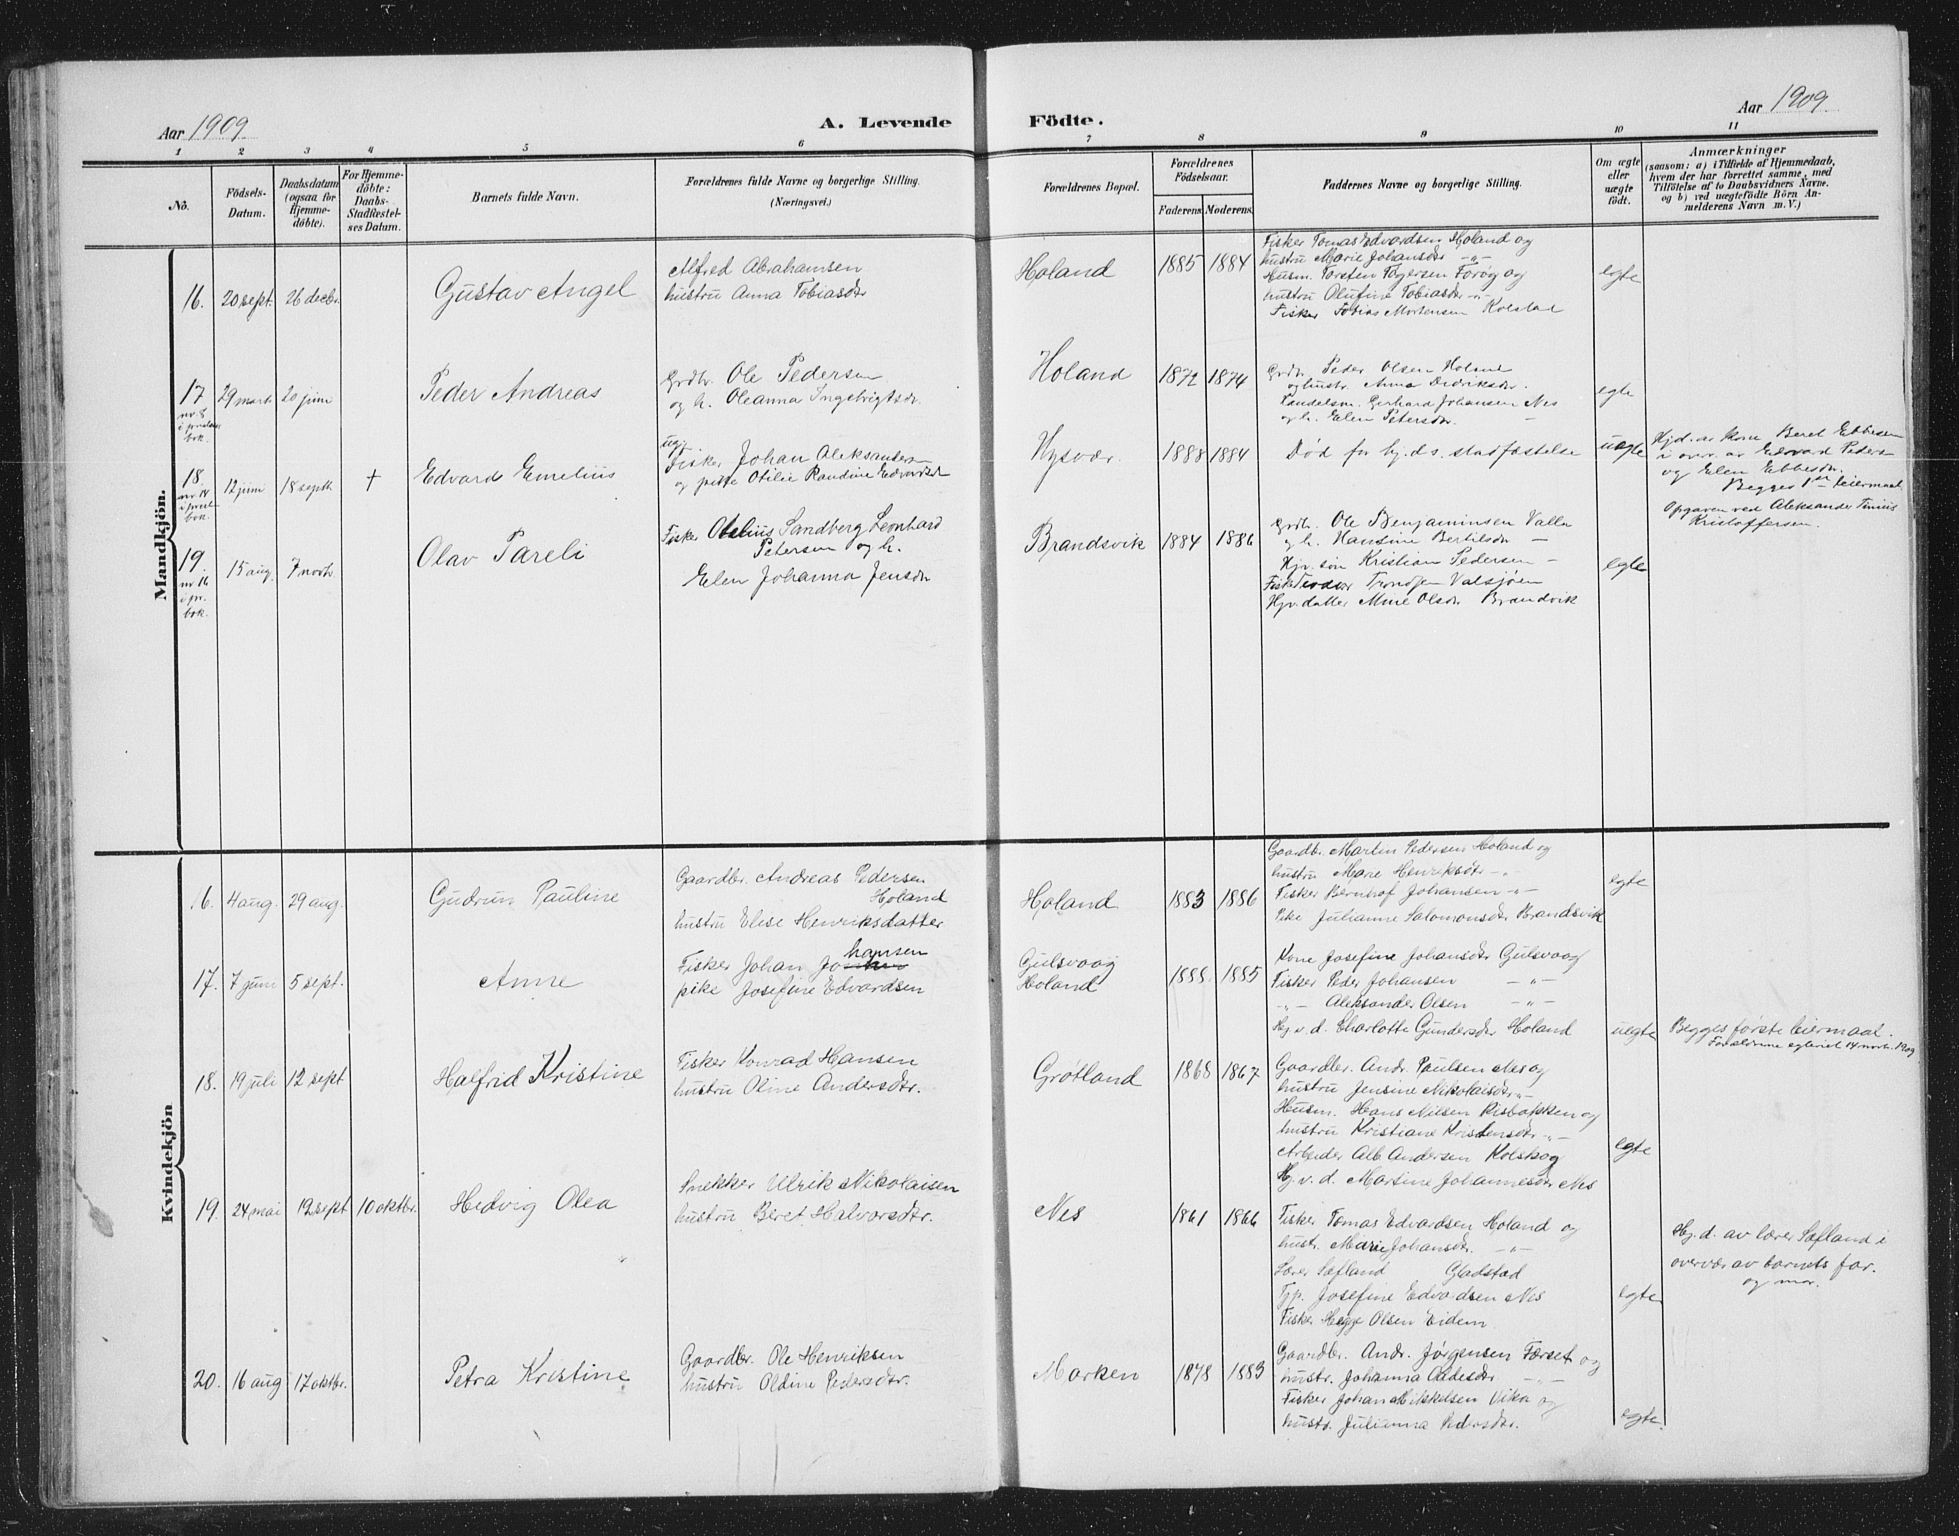 Aar 1909
A. Levende
Födte.
Aar 1909
1 2 3 4 5 6 7 8 9 10 11
No.
Födsels-
Datum.
Daabsdatum
(ogsaa for
Hjemme-
döbte).
For Hjemme-
döbte:
Daabs-
Stadfæstel-
ses Datum.
Barnets fulde Navn.
Forældrenes fulde Navne og borgerlige Stilling.
(Næringsvei.)
Forældrenes Bopæl.
Forældrenes
Födselsaar.
Faderens Moderens
Faddernes Navne og borgerlige Stilling.
Om ægte
eller
uægte
födt.
Anmærkninger
(saasom: a) i Tilfælde af Hjemmedaab,
hvem der har forrettet samme, med
Tilföielse af to Daabsvidners Navne.
og b) ved uægtefödte Börn An-
melderens Navn m. V.)
Mandkjön.
16. 20 sept. 26 decbr. Gustav Angel
Alfred Abrahamsen
hustru Anna Tobiasdtr
Holand 1885 1884
Fisker Tomas Edvardsen Holand og
hustru Marie Johansdtr -"-
Husm. Torsten Togersen Forøg og
hustru Olufine Tobiasdtr -"-
Fisker Tobias Mortensen Kolstad
egte
17
nr 8
i
bok.
29 marts 20 juni Peder Andreas
Grdbr. Ole Pedersen
og h. Oleanna Ingebrigtsdr.
Holand 1872 1874
Grdbr. Peder Olsen Holand
og hustr. Anna Didriksdr.
Landelsm. Gerhard Johansen Nes
og h. Elen Petersdtr. -
egte
18
nr 14
i
bok.
12 juni 18 septb + Edvard Emelius
ug.
Fisker Johan Aleksandersen
og pike Otilie Randine Edvardsd
Hysvær. 1888 1884
Død før hj.d.s. stadfæstelse
uegte
Hj.d. av kone Beret Ebbesen
i overv. av Edvard Peders.
og Elen Ebbesdr.
Begges 1ste leiermaal
Opgaven ved Aleksander Tinius
Kristoffersen.
19
nr 16
i pr.
bok.
15 aug. 7 novbr Olav Pareli
Fisker Otelius Sandberg Leonhard
Petersen og h.
Elen Johanna Jensdr
Brandsvik 1884 1886
Grdbr. Ole Benjaminsen Valla
og h. Hansine Bertilsdr -
Hjv. søn Kristian Pedersen -
Fisk Trondsen Valsjøen
Hjv. datter Mine Olsdr Brandvik
egte
Kvindekjön
16. 4 aug. 29 aug. Gudrun Pauline
Gaardbr. Andreas Pedersen
Holand
hustru Elise Henriksdatter
Holand 1883 1886
Gaardbr. Martin Pedersen Holand og
hustru Marie Henriksdtr -"-
Fisker Bernhof Johansen -"-
Pike Julianne Salomonsdtr Brandsvik
egte
17. 7 juni 5 sept. Anne
Fisker Johan Johansen
pike Josefine Edvardsen
Gulsvaag
Holand
1888 1885
Kone Josefine Johansdtr Gulsvaag
Fisker Peder Johansen -"-
-"- Aleksander Olsen -"-
Hj.v.d. Charlotte Gundersdtr Holand
uegte
Begges første leiermaal.
Forældrene egteviet 14 novbr. 1909
18. 19 juli 12 sept Halfrid Kristine
Fisker Konrad Hansen
hustru Oline Andersdtr.
Grøtland 1868 1867
Gaardbr. Andr. Paulsen Nes og
hustru Jensine Nikolaisdtr -"-
Husm. Hans Nilsen Risbakken og
hustru Kristiane Kristensdtr -"-
Arbeider Alb. Andersen Kolskog
Hj.v.d. Martine Johannesdtr Nes
egte
19. 24 mai 12 sept 10 oktbr. Hedvig Olea
Snekker Ulrik Nikolaisen
hustru Beret Halvorsdtr.
Nes 1861 1866
Fisker Tomas Edvardsen Holand og
hustr. Marie Johansdtr. -"-
Lærer Sæfland Gladstad
Tjp. Josefine Edvardsen Nes
Fisker Hegge Olsen Eidem
egte
Hj.d. av lærer Sæfland i
overvær av barnets far.
og mor.
20. 16 aug 17 oktbr. Petra Kristine
Gaardbr. Ole Henriksen
hustru Oldine Pedersdtr.
Marken 1878 1883
Gaardbr. Andr. Jørgensen Færset og
hustr. Johanna Oldesdtr -"-
Fisker Johan Mikkelsen Vika og
hustr. Julianna Pedersdtr.
egte